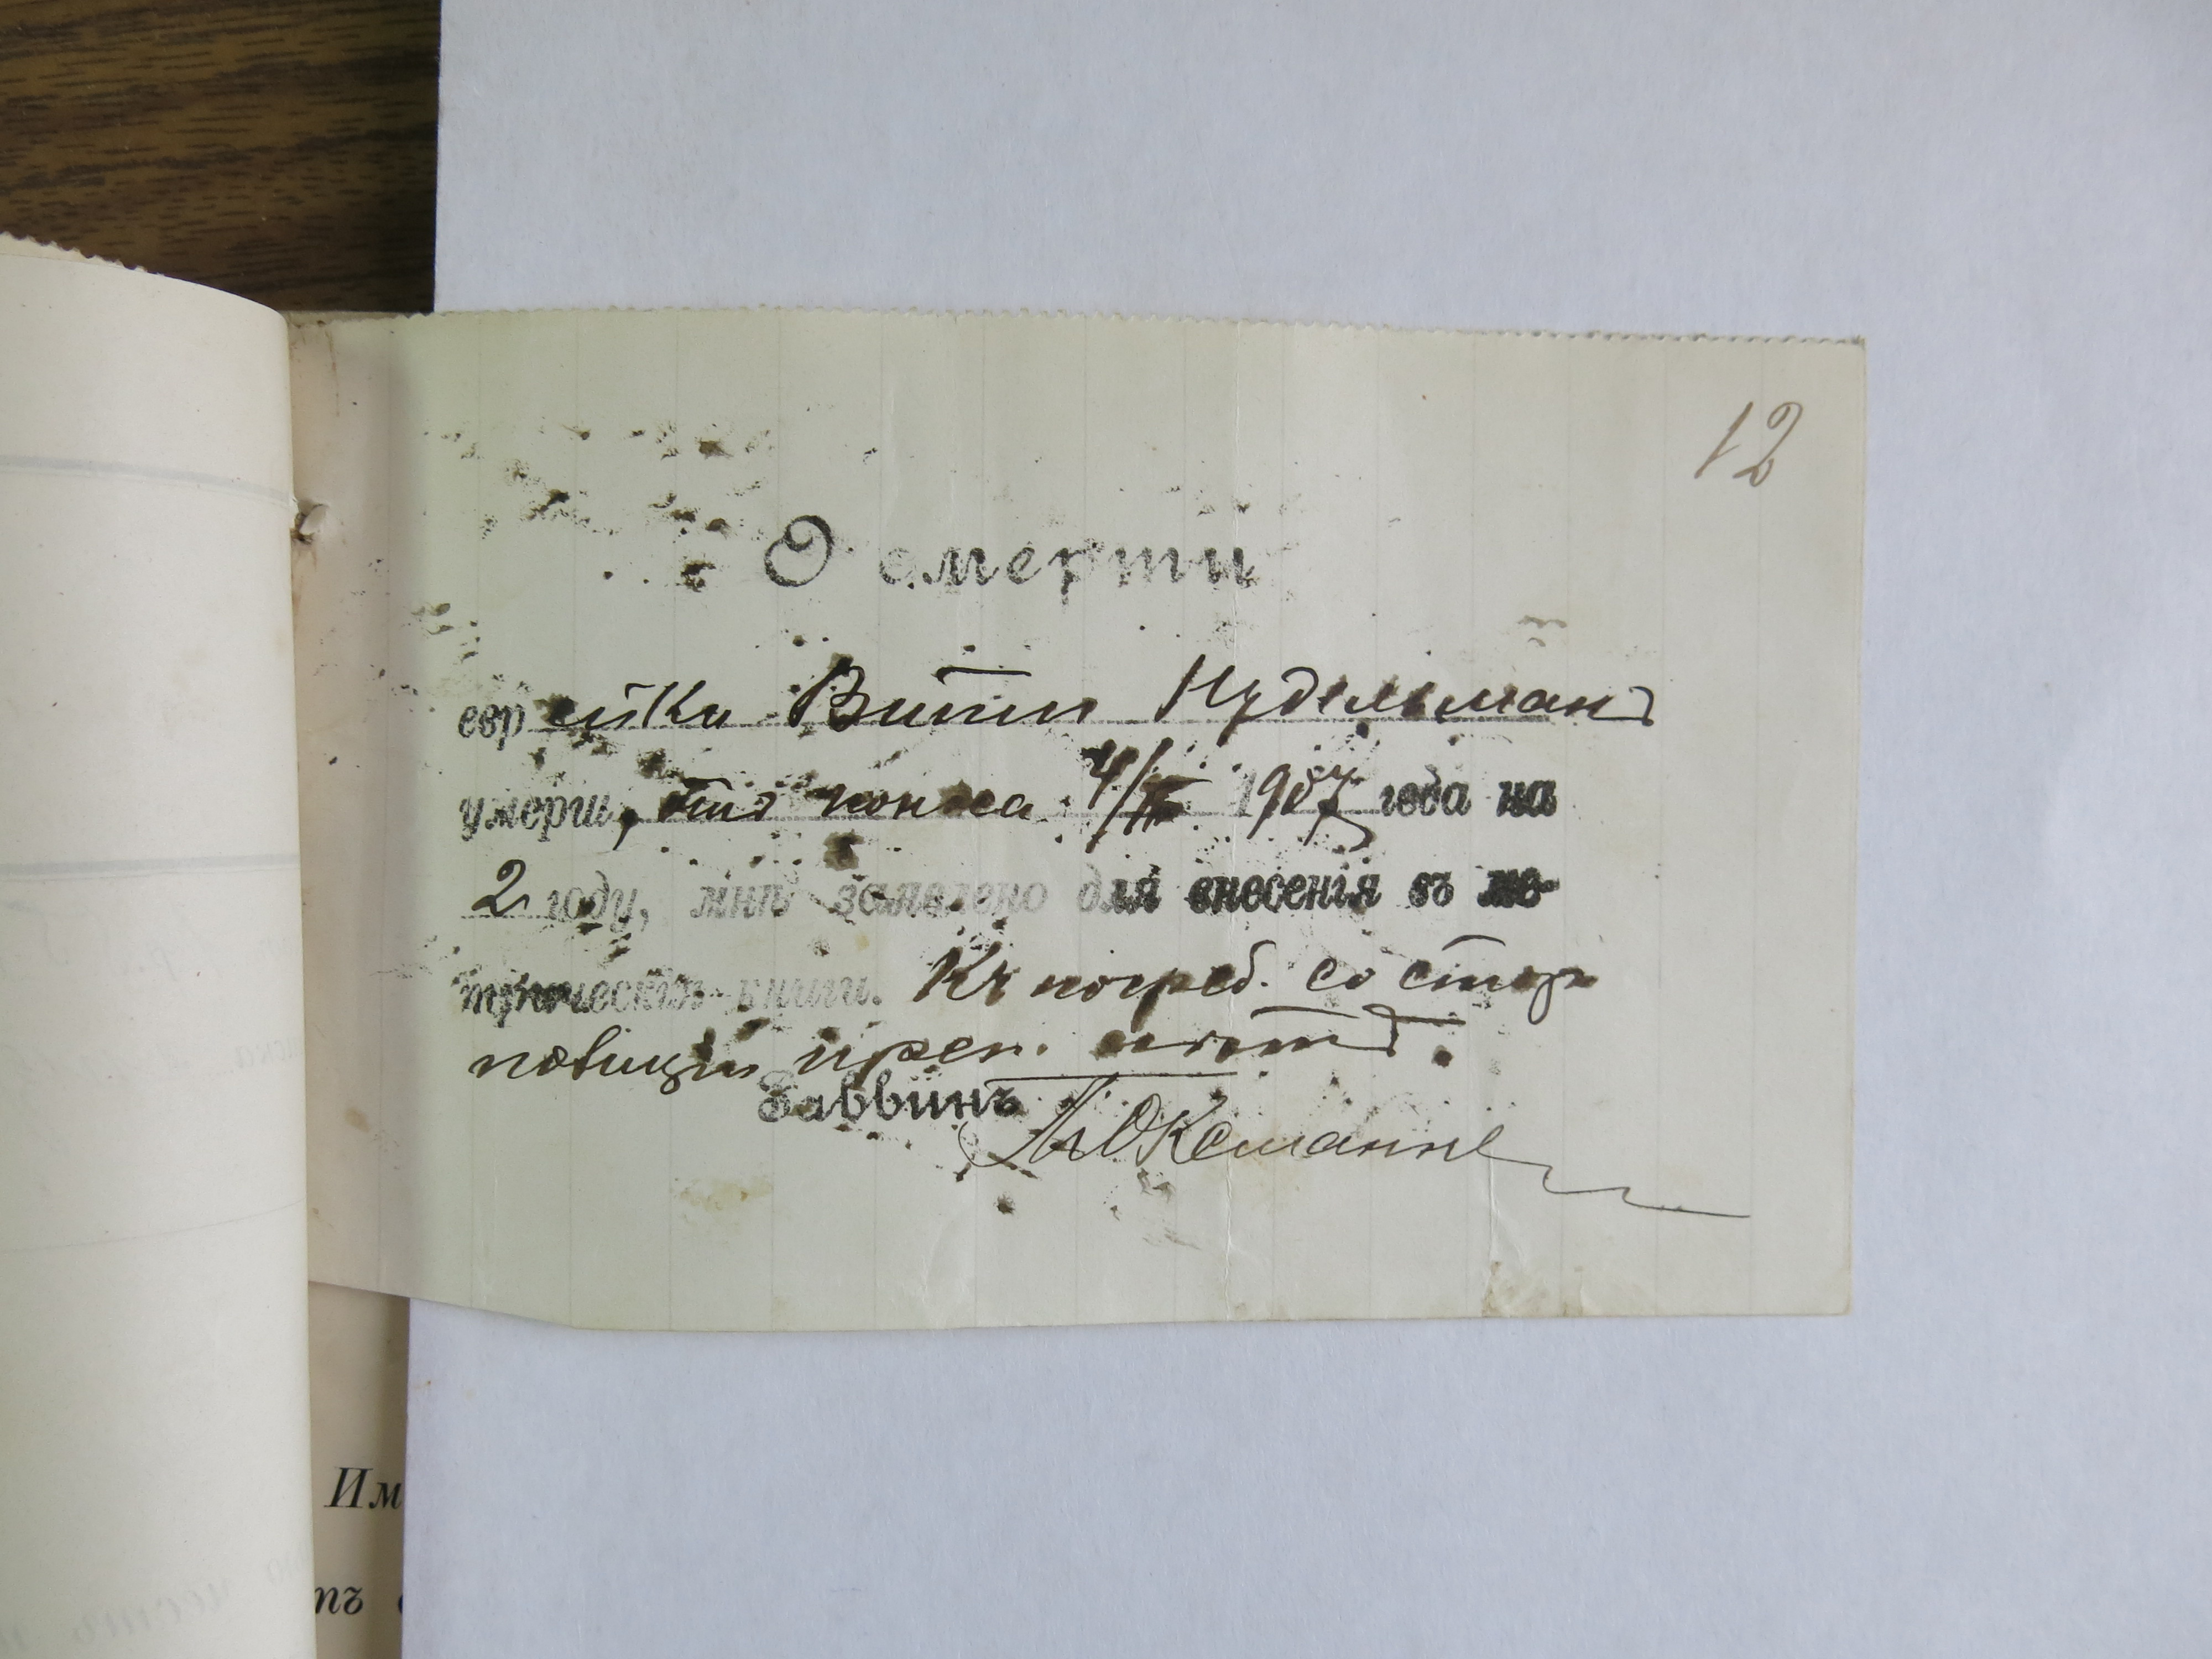 12
О смерти
еврейки Витти Нудельманъ
умерш, отъ поноса 4/ 1907 года на
2 году, мнѣ заявлено для внесенія въ ме-
трическія книги. Къ погреб. со стор
повищъ преп. нѣтъ.
Раввинъ
Им
тъ